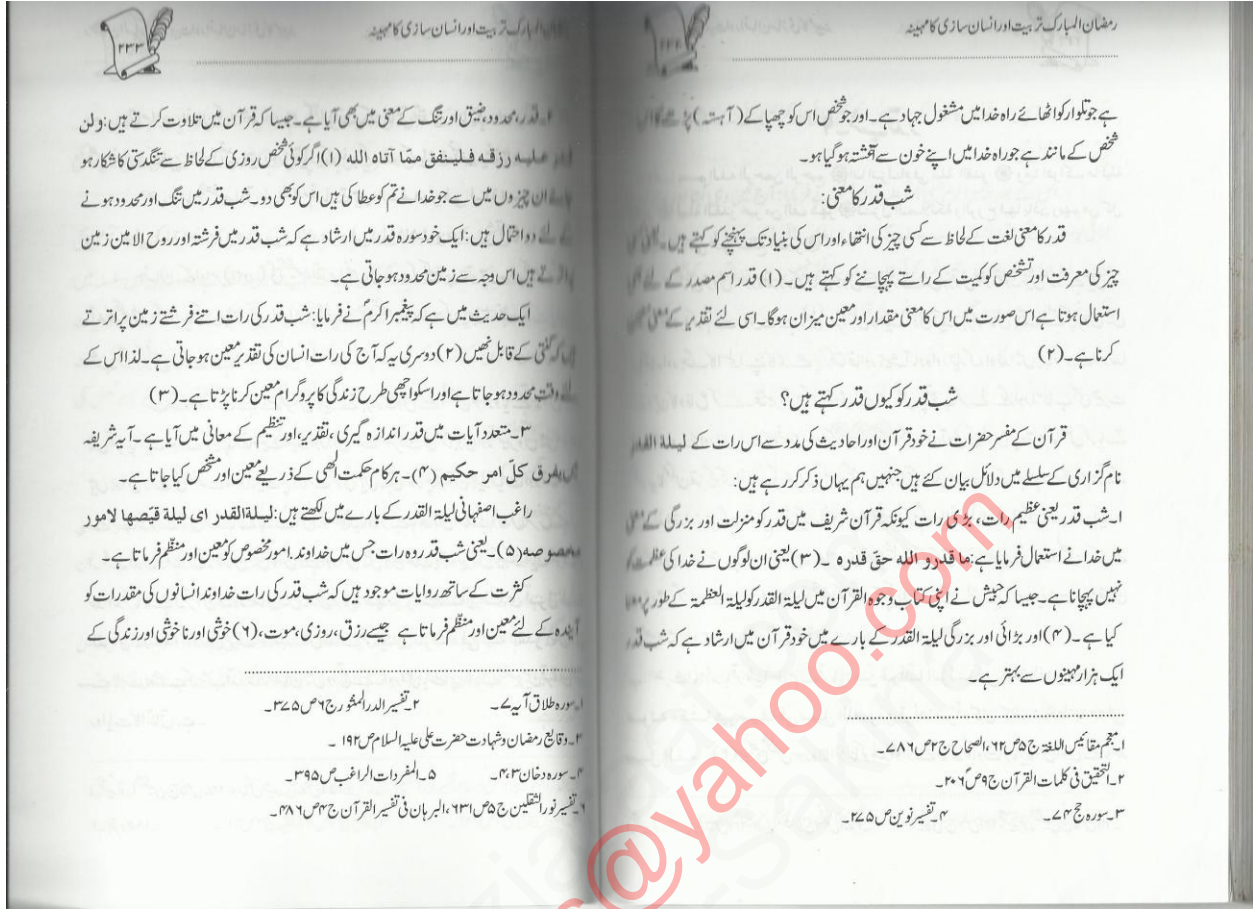 رمضان المبارک تربیت اور انسان سازی کا مہینہ
ہے جو تلوار کو اٹھائے راہ خدا میں مشغول جہاد ہے۔ اور جو شخص اس کو چھپا کے (آہستہ)
شخص کے مانند ہے جو راہ خدا میں اپنے خون سے آغشتہ ہو گیا ہو۔
شب قدر کا معنی:
قدر کا معنی لغت کے لحاظ سے کسی چیز کی انتھاء اور اس کی بنیاد تک پہنچنے کو کہتے ہیں۔
چیز کی معرفت اور تشخص کو کمیت کے راستے پہچاننے کو کہتے ہیں۔ (۱) قدر اسم مصدر کے لئے
استعمال ہوتا ہے اس صورت میں اس کا معنی مقدار اور معین میزان ہوگا۔ اسی لئے تقدیر کے معنی
کرنا ہے۔ (۲)
شب قدر کو کیوں قدر کہتے ہیں؟
قرآن کے مفسر حضرات نے خود قرآن اور احادیث کی مدد سے اس رات کے لیلة القدر
نام گزاری کے سلسلے میں دلائل بیان کئے ہیں جنہیں ہم یہاں ذکر کر رہے ہیں:
۱۔ شب قدر یعنی عظیم رات، بڑی رات کیونکہ قرآن شریف میں قدر کو منزلت اور بزرگی کے معنی
میں خدا نے استعمال فرمایا ہے: ما قدرو الله حقّ قدره ۔ (۳) یعنی ان لوگوں نے خدا کی عظمت کو
نہیں پہچانا ہے۔ جیسا کہ حبیش نے اپنی کتاب وجوہ القرآن میں لیلۃ القدر کو لیلۃ العظمۃ کے طور پر
کیا ہے۔ (۴) اور بڑائی اور بزرگی لیلۃ القدر کے بارے میں خود قرآن میں ارشاد ہے کہ شب قدر
ایک ہزار مہینوں سے بہتر ہے۔
۱۔ معجم مقائیس اللغۃ ج ۵ ص ۶۲، الصحاح ج ۲ ص ۷۸۶۔
۲۔ التحقیق فی کلمات القرآن ج ۹ ص ۲۰۶۔
۳۔ سورہ حج ۷۴۔ ۴۔ تفسیر نوین ص ۲۷۵۔
المبارک تربیت اور انسان سازی کا مہینہ
۲۳۳
۲۔ قدر، محدود، ضیق اور تنگ کے معنی میں بھی آیا ہے۔ جیسا کہ قرآن میں تلاوت کرتے ہیں: و لن
علیه رزقه فلینفق ممّا آتاه الله (۱) اگر کوئی شخص روزی کے لحاظ سے تنگدستی کا شکار ہو
ان چیزوں میں سے جو خدا نے تم کو عطا کی ہیں اس کو بھی دو۔ شب قدر میں تنگ اور محدود ہونے
کے لئے دو احتمال ہیں: ایک خود سورہ قدر میں ارشاد ہے کہ شب قدر میں فرشتہ اور روح الامین زمین
ہیں اس وجہ سے زمین محدود ہو جاتی ہے۔
ایک حدیث میں ہے کہ پیغمبر اکرمؐ نے فرمایا: شب قدر کی رات اتنے فرشتے زمین پر اترتے
کہ گنتی کے قابل نھیں (۲) دوسری یہ کہ آج کی رات انسان کی تقدیر معین ہو جاتی ہے۔ لذا اس کے
لئے وقت محدود ہو جاتا ہے اور اسکو اچھی طرح زندگی کا پروگرام معین کرنا پڑتا ہے۔ (۳)
۳۔ متعدد آیات میں قدر اندازہ گیری، تقدیر، اور تنظیم کے معانی میں آیا ہے۔ آیہ شریفہ
یفرق کلّ امر حکیم (۴)۔ ہر کام حکمت الٰھی کے ذریعے معین اور مشخص کیا جاتا ہے۔
راغب اصفہانی لیلۃ القدر کے بارے میں لکھتے ہیں: لیلة القدر ای لیلة قیّصها لامور
مخصوصه (۵)۔ یعنی شب قدر وہ رات جس میں خداوند. امور مخصوص کو معین اور منظّم فرماتا ہے۔
کثرت کے ساتھ روایات موجود ہیں کہ شب قدر کی رات خداوند انسانوں کی مقدرات کو
آیندہ کے لئے معین اور منظّم فرماتا ہے جیسے رزق، روزی، موت، (۶) خوشی اور ناخوشی اور زندگی کے
۱۔ سورہ طلاق آیہ ۷۔ ۲۔ تفسیر الدر المنثور ج ۶ ص ۳۷۵۔
۳۔ وقایع رمضان و شہادت حضرت علی علیہ السلام ص ۱۹۲ ۔
۴۔ سورہ دخان ۳،۴۔ ۵۔ المفردات الراغب ص ۳۹۵۔
۶۔ تفسیر نور الثقلین ج ۵ ص ۶۳۱، البرہان فی تفسیر القرآن ج ۴ ص ۴۸۶۔
@yahoo.com